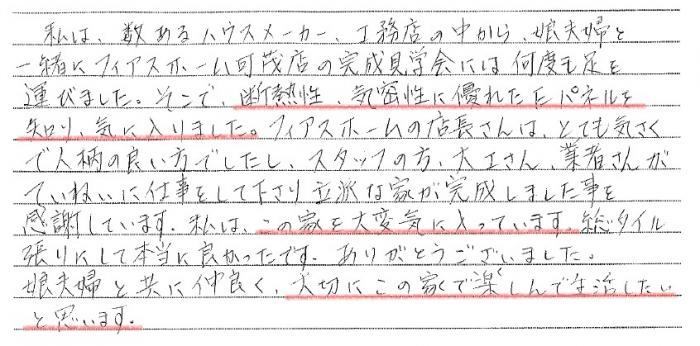 私は、数あるハウスメーカー、工務店の中から、娘夫婦と
一緒にフィアスホーム可茂店の完成見学会には何度も足を
運びました。そこで、断熱性、気密性に優れたEパネルを
知り、気に入りました。フィアスホームの店長さんは、とても気さく
で人柄の良い方でしたし、スタッフの方、大工さん、業者さんが
ていねいに仕事をして下さり立派な家が完成しました事を
感謝しています。私は、この家を大変気に入っています。総タイル
張りにして本当に良かったです。ありがとうございました。
娘夫婦と共に仲良く、大切にこの家で楽しんで生活したい
と思います。